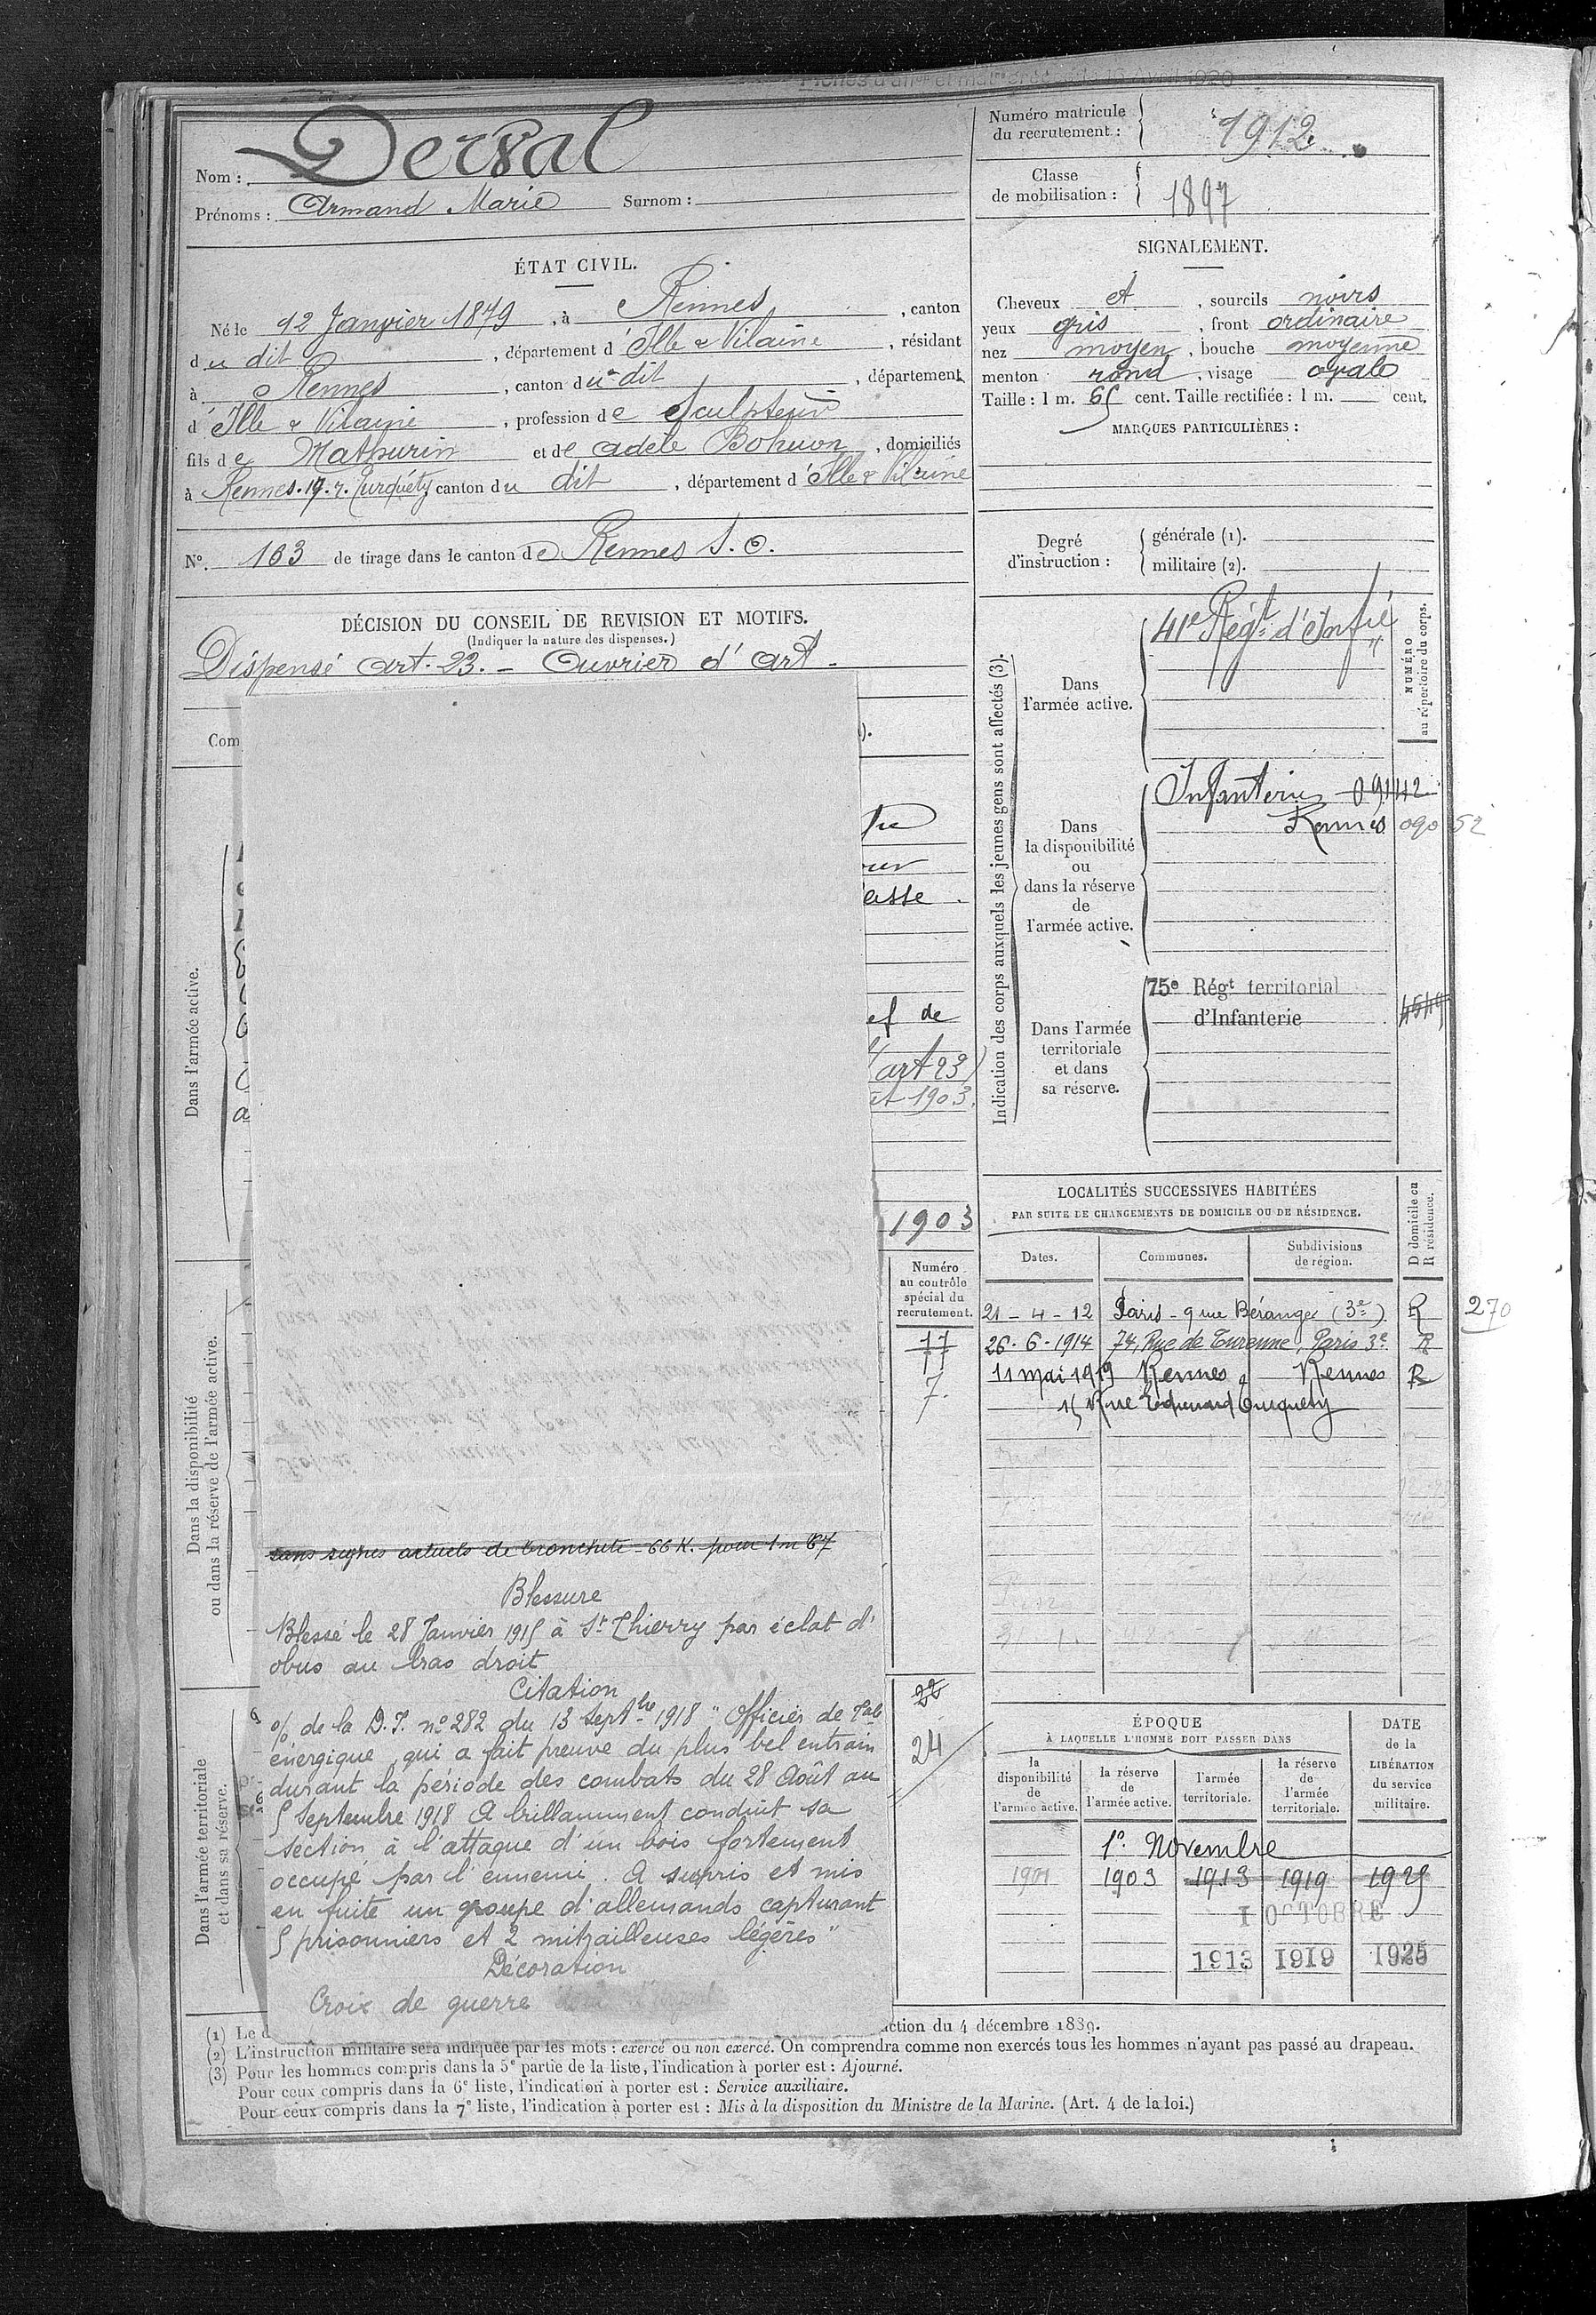 Nom : Derval
Prénoms : Armand Marie Surnom :
Numéro matricule du recrutement : 1912
Classe de mobilisation : 1897
ÉTAT CIVIL.
Né le 12 Janvier 1879, à Rennes, canton
du dit, département d'Ille & Vilaine, résidant
à Rennes, canton du dit, département
d'Ille & Vilaine, profession de Sculpteur
fils de Mathurin et de Adèle Bohuon, domiciliés
à Rennes. 19. r. Turquéty, canton du dit, département d'Ille & Vilaine
N°. 163 de tirage dans le canton de Rennes S. O.
DÉCISION DU CONSEIL DE REVISION ET MOTIFS.
(Indiquer la nature des dispenses.)
Dispensé art. 23. - Ouvrier d'art -
SIGNALEMENT.
Cheveux et, sourcils noirs
yeux gris, front ordinaire
nez moyen, bouche moyenne
menton rond, visage ovale
Taille : 1 m. 65 cent. Taille rectifiée : 1 m. cent.
MARQUES PARTICULIÈRES :
Degré d'instruction : générale (1).
militaire (2).
Indication des corps auxquels les jeunes gens sont affectés (3).
NUMÉRO au répertoire du corps.
Dans l'armée active.
41e Régt d'Infie
Dans la disponibilité ou dans la réserve de l'armée active.
Infanterie
Rennes 090 52
Dans l'armée territoriale et dans sa réserve.
75e Régt territorial
d'Infanterie
Com
Dans l'armée active.
asse
ef de
(art 23)
et 1903.
1903
Dans la disponibilité
ou dans la réserve de l'armée active.
Numéro
au contrôle
spécial du
recrutement.
77
7.
LOCALITÉS SUCCESSIVES HABITÉES
PAR SUITE DE CHANGEMENTS DE DOMICILE OU DE RÉSIDENCE.
D domicile ou R résidence.
Dates. Communes. Subdivisions de région.
21 - 4 - 12 Paris - 9 rue Béranger (3e) R 270
26 - 6 - 1914 74, Rue de Turenne, Paris 3e R
11 mai 1919 Rennes Rennes R
15 Rue Edouard Turquety
sans signes actuels de bronchite - 66 K. pour 1m 67
Blessure
Blessé le 28 Janvier 1915 à St Thierry par éclat d'
obus au bras droit
Citation
% de la D.I. n° 282 du 13 Septbre 1918 " Officier de
énergique, qui a fait preuve du plus bel entrain
durant la période des combats du 28 Août au
5 Septembre 1918 A brillamment conduit sa
section à l'attaque d'un bois fortement
occupé par l'ennemi. A surpris et mis
en fuite un groupe d'allemands capturant
5 prisonniers et 2 mitrailleuses légères"
Décoration
Croix de guerre
Dans l'armée territoriale
et dans sa réserve.
22
24
ÉPOQUE
À LAQUELLE L'HOMME DOIT PASSER DANS
DATE de la LIBÉRATION du service militaire.
la disponibilité de l'armée active.
la réserve de l'armée active.
l'armée territoriale.
la réserve de l'armée territoriale.
1er Novembre
1901 1903 1913 1919 1925
1 OCTOBRE
1913 1919 1925
(1) Le d
ction du 4 décembre 1889.
(2) L'instruction militaire sera indiquée par les mots : exercé ou non exercé. On comprendra comme non exercés tous les hommes n'ayant pas passé au drapeau.
(3) Pour les hommes compris dans la 5e partie de la liste, l'indication à porter est : Ajourné.
Pour ceux compris dans la 6e liste, l'indication à porter est : Service auxiliaire.
Pour ceux compris dans la 7e liste, l'indication à porter est : Mis à la disposition du Ministre de la Marine. (Art. 4 de la loi.)